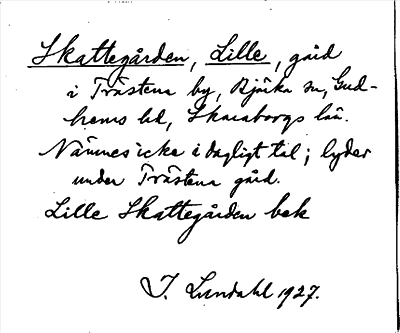 Skattegården, Lille, gård
i Trästena by, Bjärka sn, Gud-
hems hd, Skaraborgs län.
Nämnes icke i dagligt tal; lyder
under Trästena gård.
Lille Skattegården bek
I. Lundahl 1927.